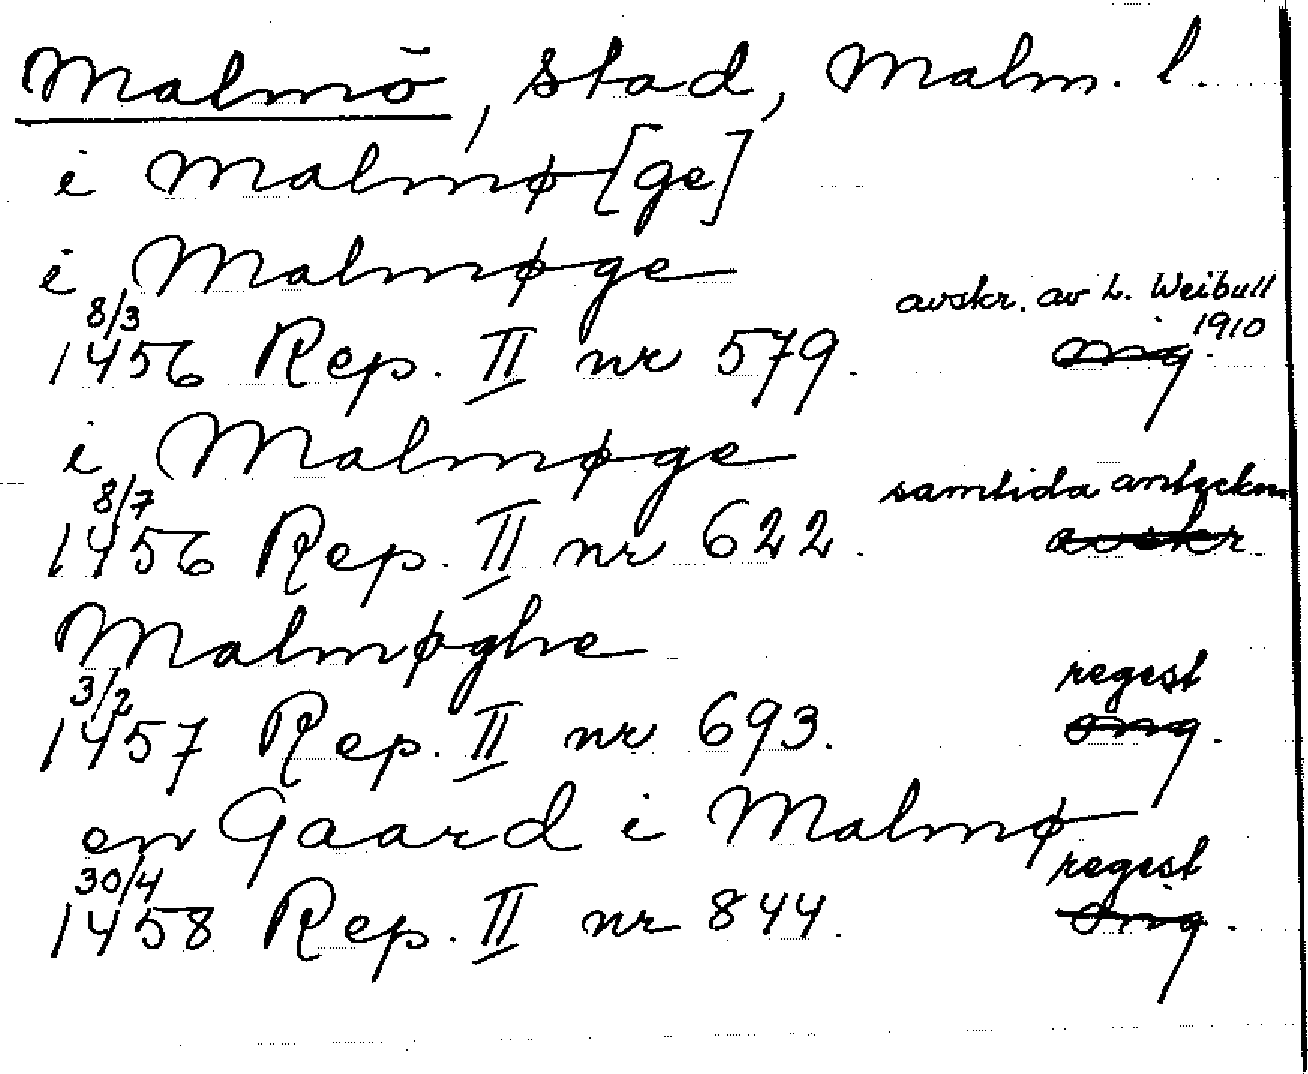 Malmö, stad, Malm. l.
i Malmø[ge]
i Malmøge
avskr. av L. Weibull
1910
8/3
1456 Rep. II nr 579. orig.
i Malmøge
samtida anteckn
8/7
1456 Rep. II nr 622. avskr.
Malmøghe
regest
3/2
1457 Rep. II nr 693. orig.
en Gaard i Malmø
regest
30/4
1458 Rep. II nr 844. orig.